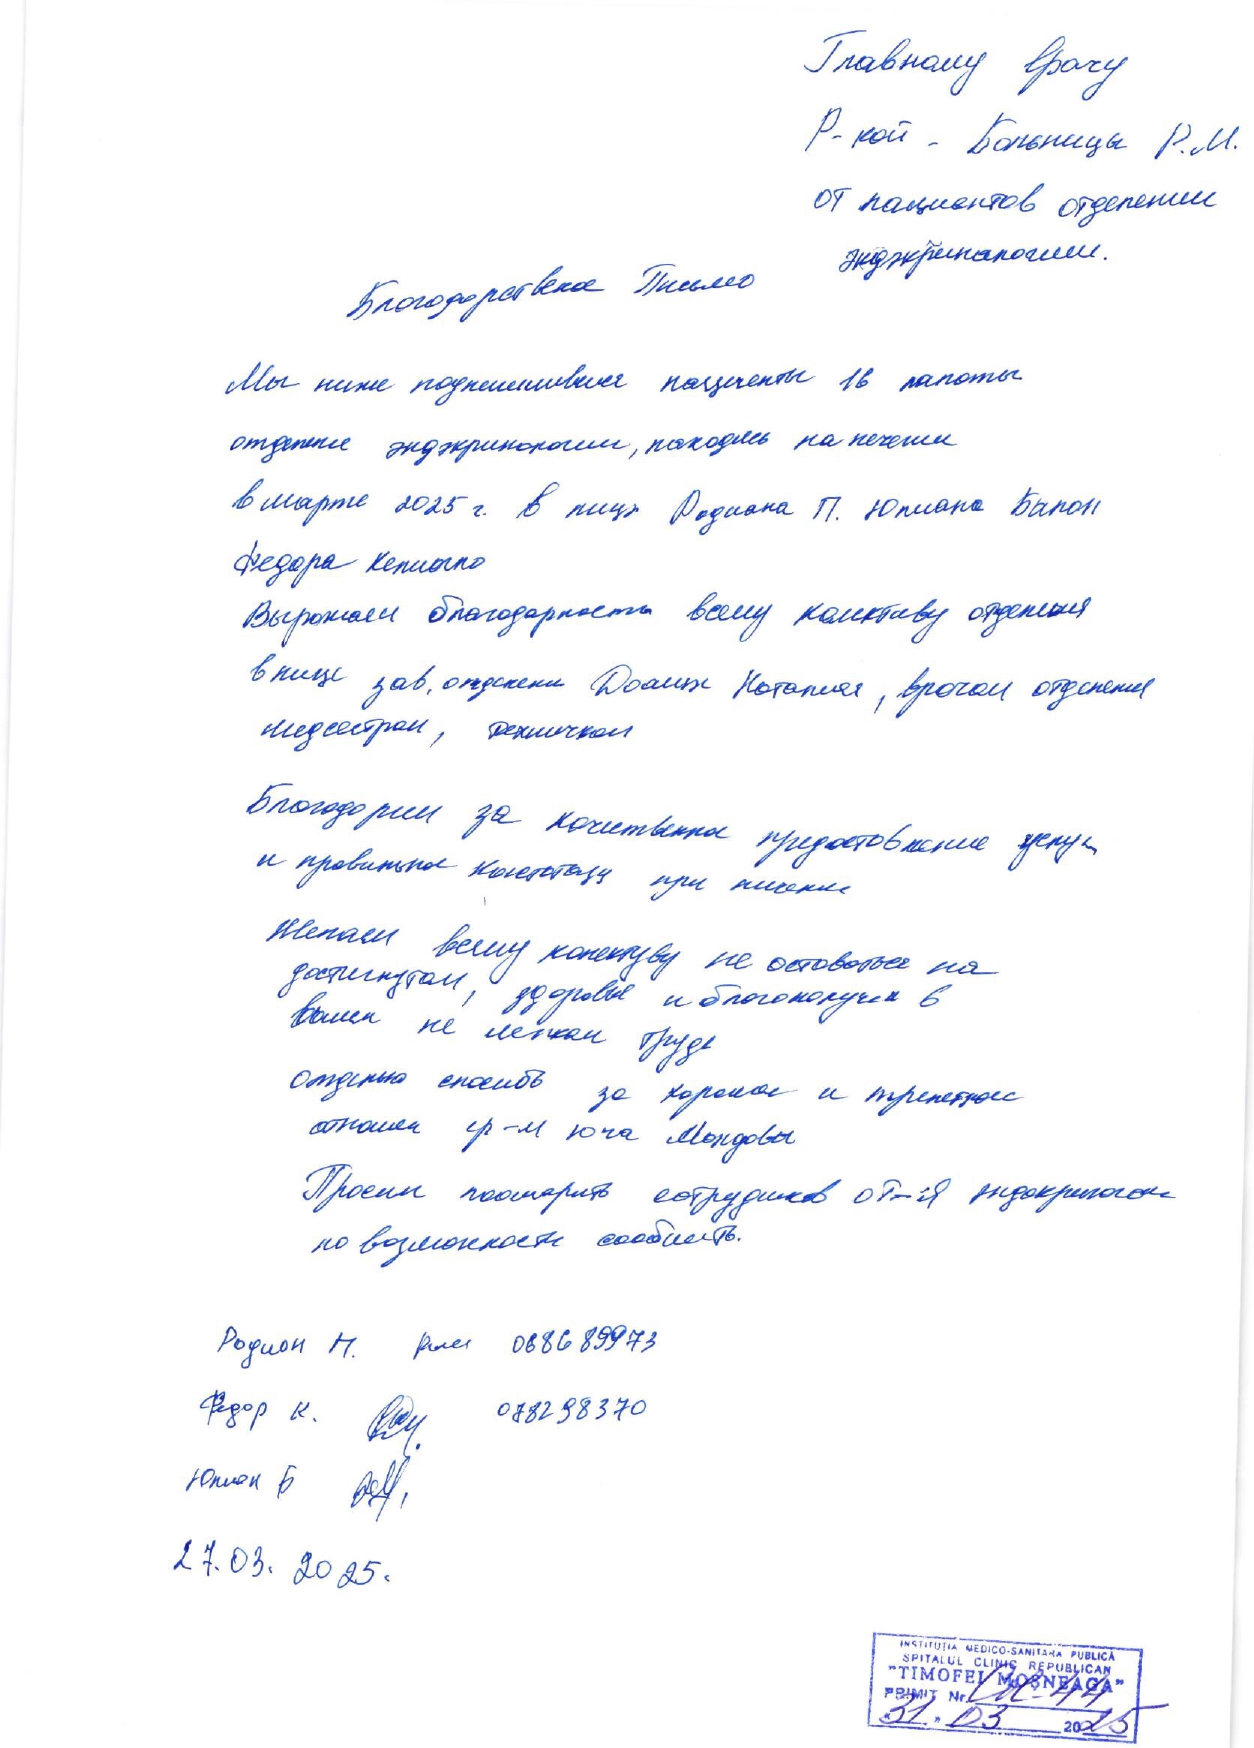 Главному врачу
Р-кой - Больницы Р.М.
от пациентов отделении
энджкриналогии.
Благодарствене Письмо
Мы ниже подписившиеся пациенты 16 палаты
отделение энджкринологии, находясь на лечении
в марте 2025 г. в лице Родиана П. Юлиана Балон
Федора
Выражаем благодарность всему колективу отделения
в лице зав. отделени Наталия, врачам отделения
медсестрам, техничкам
Благодарим за качественное предоставление услуг
и правильное при лечение
Желаем всему колективу не оставаться на
достигнутом, здоровье и благополучия в
вашем не легком труде
Отдельно спасибо за хорошое и трепетное
отношен гр-м юга Молдовы
Просим поощарить сотрудиков от-я эндокринологи
по возможности сообщить.
Родион П. 068689973
Федор К. 078298370
Юлиан Б
27.03.2025.
INSTITUȚIA MEDICO-SANITARĂ PUBLICĂ
SPITALUL CLINIC REPUBLICAN
"TIMOFEI MOȘNEAGA"
PRIMIT Nr. 44
"31" 03 2025